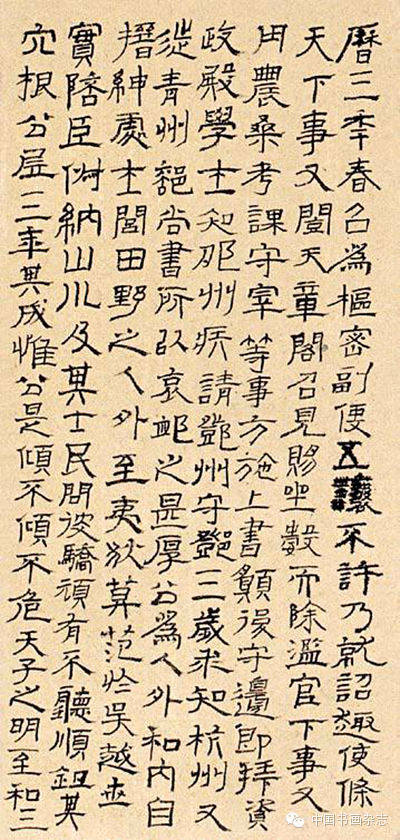 曆三年春召爲樞密副使五讓不許乃就詔趣使條
天下事又開天章閣召見賜坐數而除濫官下事又
用農桑考課守宰等事方施上書願復守邊即拜資
政殿學士知邠州疾請鄧州守鄧三歲求知杭州又
從青州尚書所以哀卹之甚厚公爲人外和内白
搢紳處士閭田野之人外至夷狄莫范於吳越世
實陪臣俶納山川及其士民問彼驕頑有不聽順鉏其
穴根公居三年其成惟公是傾不傾不危天子之明至和三
中国书画杂志